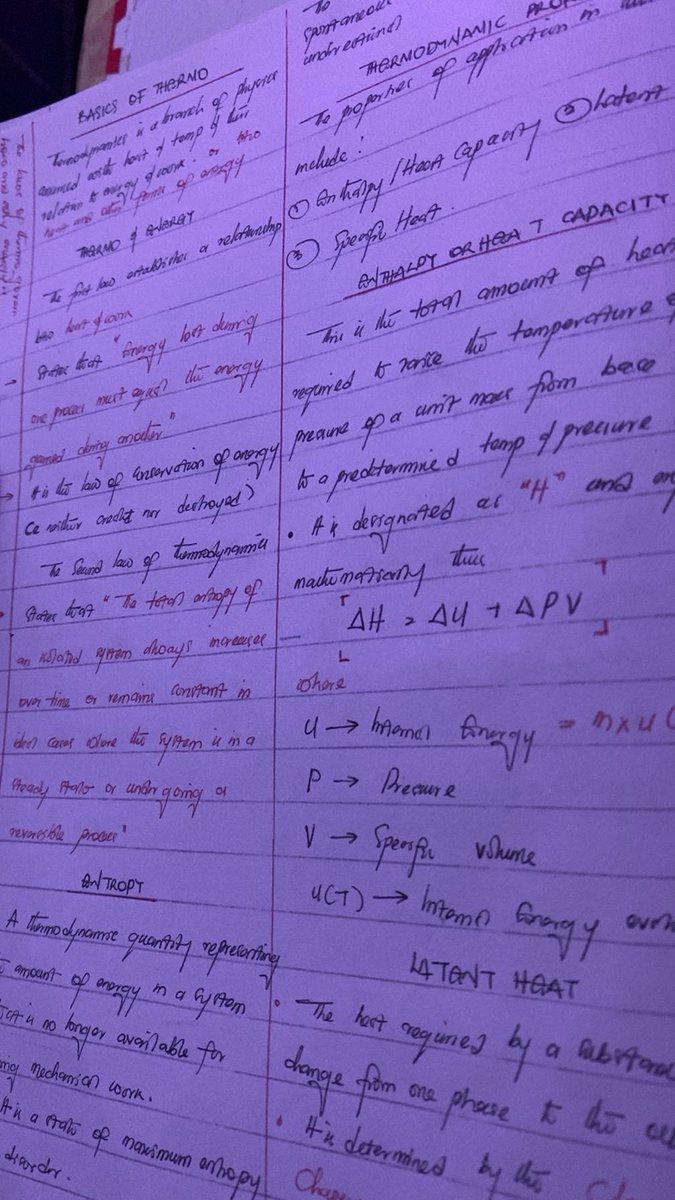 BASICS OF THERMO
Thermodynamics is a branch of physics
concerned with heat & temp & their
relation to energy & work. or who
heat and other forms of energy
THERMO & ENERGY
The first law establishes a relationship
btw heat & work
States that "Energy lost during
one process must equal the energy
gained during another"
It is the law of conservation of energy
(ie neither created nor destroyed)
The Second law of thermodynamics
States that "The total entropy of
an isolated system always increases
over time or remains constant in
ideal cases where the system is in a
steady state or undergoing a
reversible process"
ENTROPY
A thermodynamic quantity representing
amount of energy in a system
is no longer available for
mechanical work.
It is a state of maximum entropy
disorder.
To
spontaneous
undirectional
THERMODYNAMIC
The properties of application in
include:
① Enthalpy / Heat Capacity ② Latent
③ Specific Heat.
ENTHALPY OR HEAT CAPACITY
This is the total amount of heat
required to raise the temperature &
pressure of a unit mass from base
to a predetermined temp & pressure
• It is designated as "H" and
mathematically thus
ΔH = ΔU + ΔPV
where
U → Internal Energy = m x u(
P → Pressure
V → Specific volume
u(T) → Internal Energy
LATENT HEAT
• The heat required by a
change from one phase to the
• It is determined by the